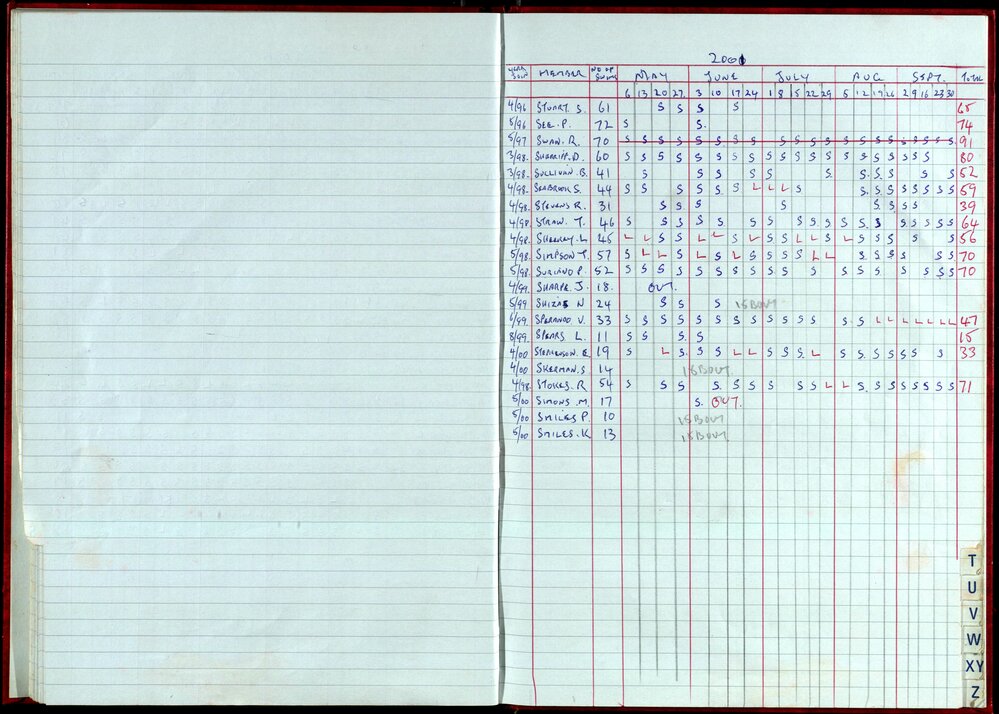 2001
YEAR JOIN MEMBER NO OF SWIMS MAY JUNE JULY AUG SEPT. TOTAL
6 13 20 27 3 10 17 24 1 8 15 22 29 5 12 19 26 2 9 16 23 30
4/96 STUART. S. 61 S S S S 65
5/96 SEE. P. 72 S S. 74
5/97 SWAN. R. 70 S S S S S S S S S S S S S S S S S S S S S 91
3/98. SHERIFF. D. 60 S S S S S S S S S S S S S S S S S S S S 80
3/98. SULLIVAN. B. 41 S S S S S S S. S. S S S 52
4/98. SEABROOK S. 44 S S S S S S L L L S S. S. S S S S S S 59
4/98. STEVENS R. 31 S S S S S S S S 39
4/98 STRAW. T. 46 S S S S S S S S S S S S S S S S S S 64
4/98 L 45 L L S S L L S L S S L L S L S S S S S 56
5/98. SIMPSON T. 57 S L L S L S L S S S L L S S S S S S 70
5/98. P. 52 S S S S S S S S S S S S S S S S S S 70
4/99. SHARPE. J. 18. OUT.
5/99 N 24 S S S 15BOUT
6/99. V. 33 S S S S S S S S S S S S. S L L L L L L L 47
8/99. SPEARS L. 11 S S S S 15
4/00 STEPHENSON. E. 19 S L S. S S L L S S S. L S S S S S S S 33
4/00 SHERMAN. S. 14 15BOUT.
4/98 STOKES. R 54 S S S S S S S S S L L S S S S S S S 71
5/00 SIMONS. M. 17 S. OUT.
5/00 SMILES P. 10 15BOUT
5/00 SMILES. K 13 15BOUT.
T
U
V
W
XY
Z